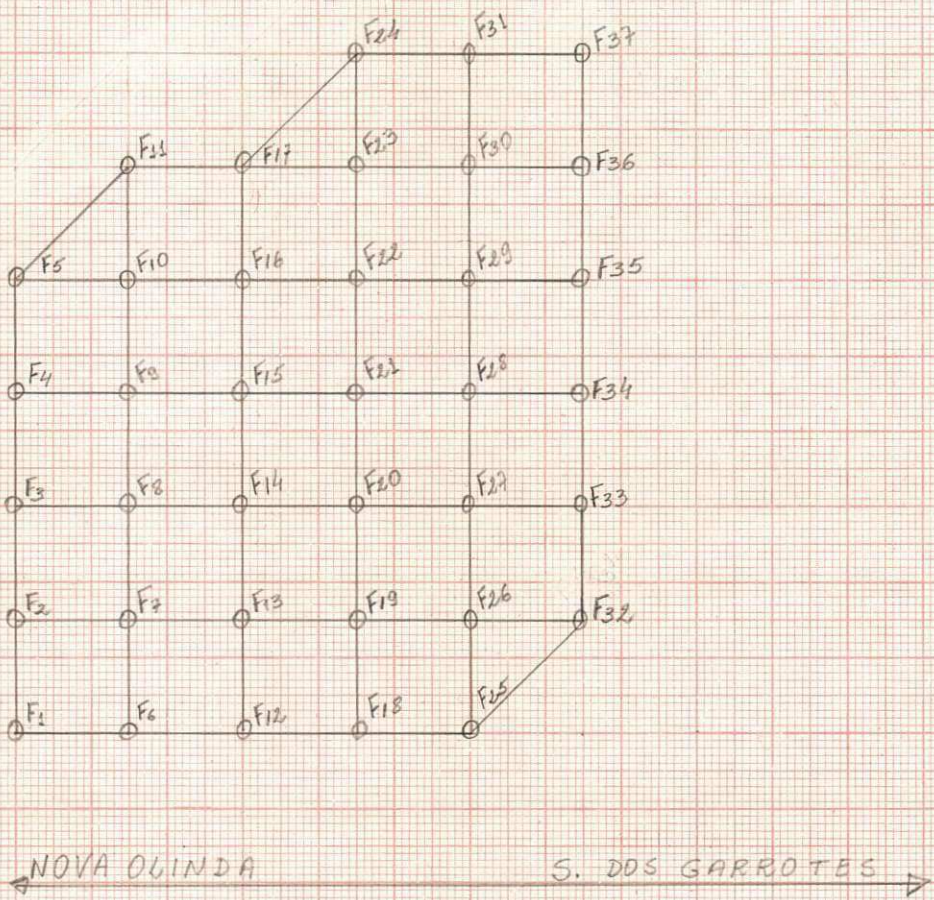 F24 F31 F37
F11 F17 F23 F30 F36
F5 F10 F16 F22 F29 F35
F4 F9 F15 F21 F28 F34
F3 F8 F14 F20 F27 F33
F2 F7 F13 F19 F26 F32
F1 F6 F12 F18 F25
NOVA OLINDA S. DOS GARROTES